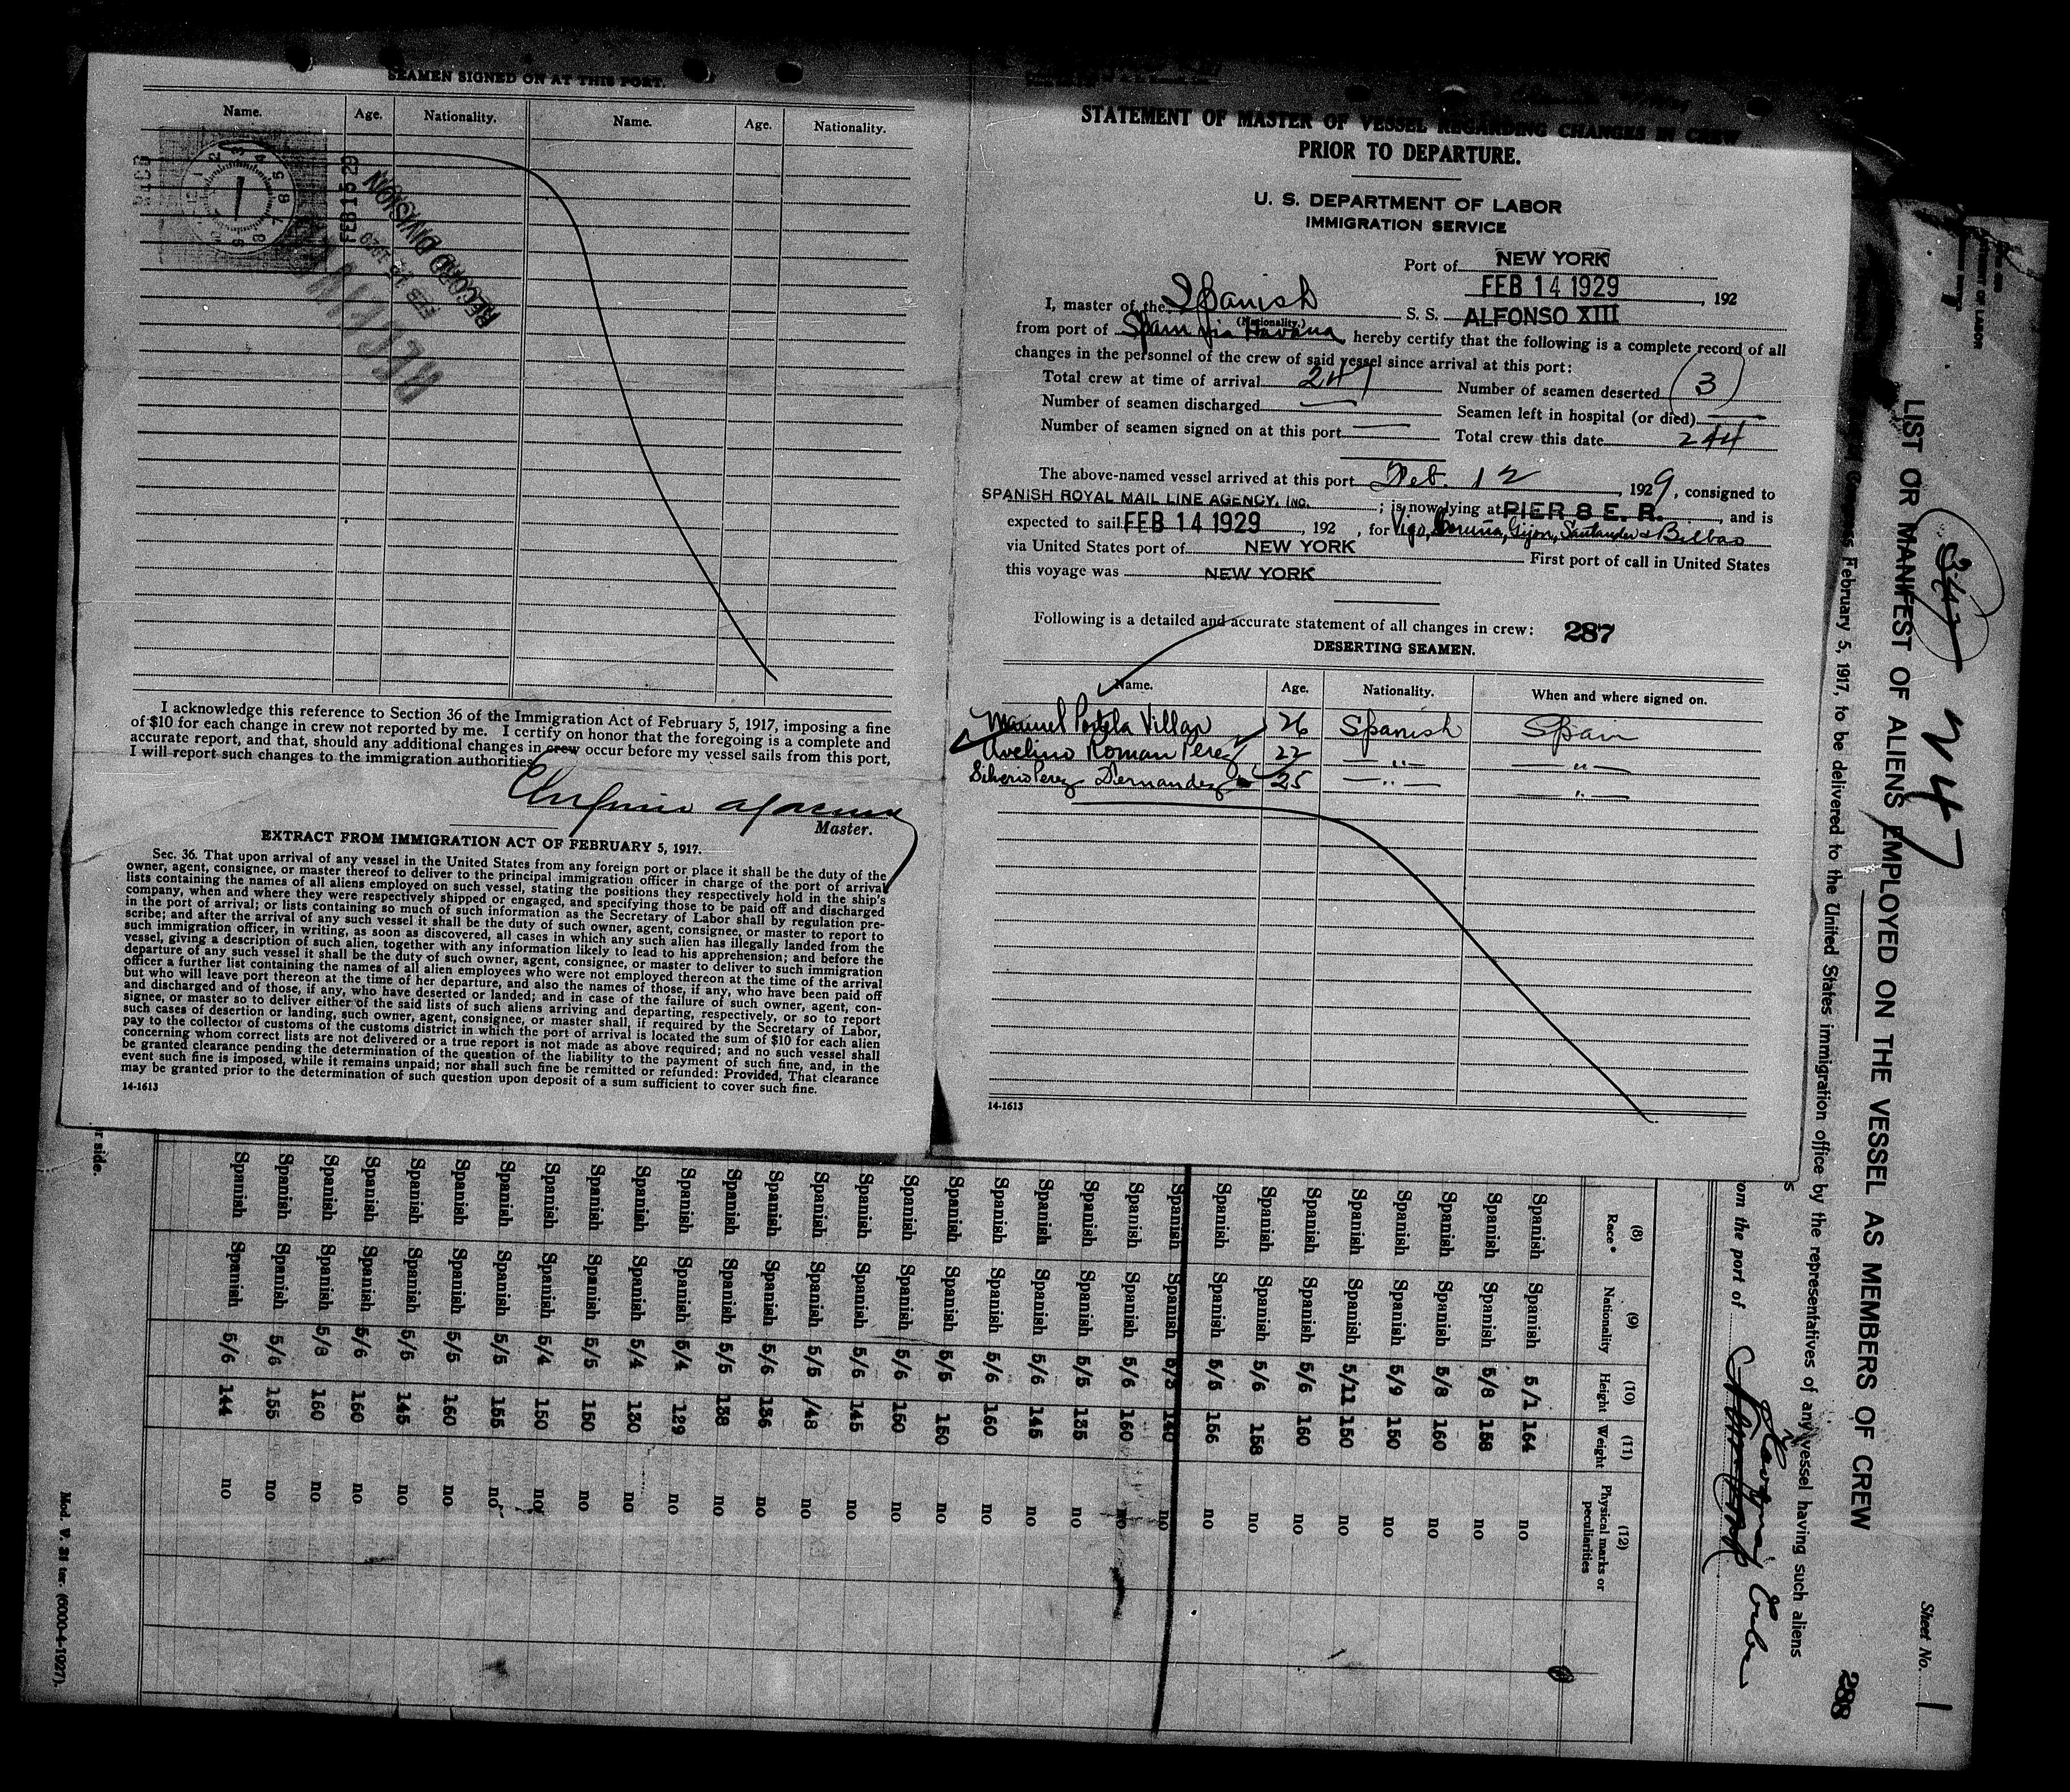 SEAMEN SIGNED ON AT THIS PORT.
Name. Age. Nationality. Name. Age. Nationality.
FEB 15 29
RECORD DIVISION
I acknowledge this reference to Section 36 of the Immigration Act of February 5, 1917, imposing a fine
of $10 for each change in crew not reported by me. I certify on honor that the foregoing is a complete and
accurate report, and that, should any additional changes in crew occur before my vessel sails from this port,
I will report such changes to the immigration authorities.
Master.
EXTRACT FROM IMMIGRATION ACT OF FEBRUARY 5, 1917.
Sec. 36. That upon arrival of any vessel in the United States from any foreign port or place it shall be the duty of the
owner, agent, consignee, or master thereof to deliver to the principal immigration officer in charge of the port of arrival
lists containing the names of all aliens employed on such vessel, stating the positions they respectively hold in the ship's
company, when and where they were respectively shipped or engaged, and specifying those to be paid off and discharged
in the port of arrival; or lists containing so much of such information as the Secretary of Labor shall by regulation pre-
scribe; and after the arrival of any such vessel it shall be the duty of such owner, agent, consignee, or master to report to
such immigration officer, in writing, as soon as discovered, all cases in which any such alien has illegally landed from the
vessel, giving a description of such alien, together with any information likely to lead to his apprehension; and before the
departure of any such vessel it shall be the duty of such owner, agent, consignee, or master to deliver to such immigration
officer a further list containing the names of all alien employees who were not employed thereon at the time of the arrival
but who will leave port thereon at the time of her departure, and also the names of those, if any, who have been paid off
and discharged and of those, if any, who have deserted or landed; and in case of the failure of such owner, agent, con-
signee, or master so to deliver either of the said lists of such aliens arriving and departing, respectively, or so to report
such cases of desertion or landing, such owner, agent, consignee, or master shall, if required by the Secretary of Labor,
pay to the collector of customs of the customs district in which the port of arrival is located the sum of $10 for each alien
concerning whom correct lists are not delivered or a true report is not made as above required; and no such vessel shall
be granted clearance pending the determination of the question of the liability to the payment of such fine, and, in the
event such fine is imposed, while it remains unpaid; nor shall such fine be remitted or refunded: Provided, That clearance
may be granted prior to the determination of such question upon deposit of a sum sufficient to cover such fine.
14-1613
STATEMENT OF MASTER OF VESSEL REGARDING CHANGES IN CREW
PRIOR TO DEPARTURE.
U. S. DEPARTMENT OF LABOR
IMMIGRATION SERVICE
Port of NEW YORK
FEB 14 1929, 192
I, master of the Spanish S. S. ALFONSO XIII
(Nationality.)
from port of Spain via Havana, hereby certify that the following is a complete record of all
changes in the personnel of the crew of said vessel since arrival at this port:
Total crew at time of arrival 247 Number of seamen deserted (3)
Number of seamen discharged — Seamen left in hospital (or died) —
Number of seamen signed on at this port — Total crew this date 244
The above-named vessel arrived at this port Feb. 12, 1929, consigned to
SPANISH ROYAL MAIL LINE AGENCY, INC. ; is now lying at PIER 8 E. R., and is
expected to sail FEB 14 1929, 192 , for Vigo, Coruña, Gijon, Santander & Bilbao
via United States port of NEW YORK First port of call in United States
this voyage was NEW YORK
Following is a detailed and accurate statement of all changes in crew: 287
DESERTING SEAMEN.
Name. Age. Nationality. When and where signed on.
Manuel Portela Villar 26 Spanish Spain
Avelino Roman Perez 22 — " — — " —
Silverio Perez Fernandez 25 — " — — " —
14-1613
Sheet No. 1
247
LIST OR MANIFEST OF ALIENS EMPLOYED ON THE VESSEL AS MEMBERS OF CREW
288
February 5, 1917, to be delivered to the United States immigration office by the representatives of any vessel having such aliens
om the port of Havana, Cuba
(8) Race* (9) Nationality (10) Height (11) Weight (12) Physical marks or peculiarities
Spanish Spanish 5/1 164 no
Spanish Spanish 5/8 158 no
Spanish Spanish 5/8 160 no
Spanish Spanish 5/9 150 no
Spanish Spanish 5/11 150 no
Spanish Spanish 5/6 160 no
Spanish Spanish 5/6 158 no
Spanish Spanish 5/5 156 no
Spanish Spanish 140 no
Spanish Spanish 5/6 160 no
Spanish Spanish 5/5 135 no
Spanish Spanish 5/6 145 no
Spanish Spanish 5/6 160 no
Spanish Spanish 5/5 150 no
Spanish Spanish 5/6 150 no
Spanish Spanish 5/6 145 no
Spanish Spanish 5/5 148 no
Spanish Spanish 5/6 136 no
Spanish Spanish 5/5 138 no
Spanish Spanish 5/4 129 no
Spanish Spanish 5/4 130 no
Spanish Spanish 5/5 150 no
Spanish Spanish 5/4 150 no
Spanish Spanish 5/5 155 no
Spanish Spanish 5/5 160 no
Spanish Spanish 5/5 145 no
Spanish Spanish 5/6 160 no
Spanish Spanish 5/8 160 no
Spanish Spanish 5/6 155 no
Spanish Spanish 5/6 144 no
r side.
Mod. V. 21 ter. (6000-4-1927).